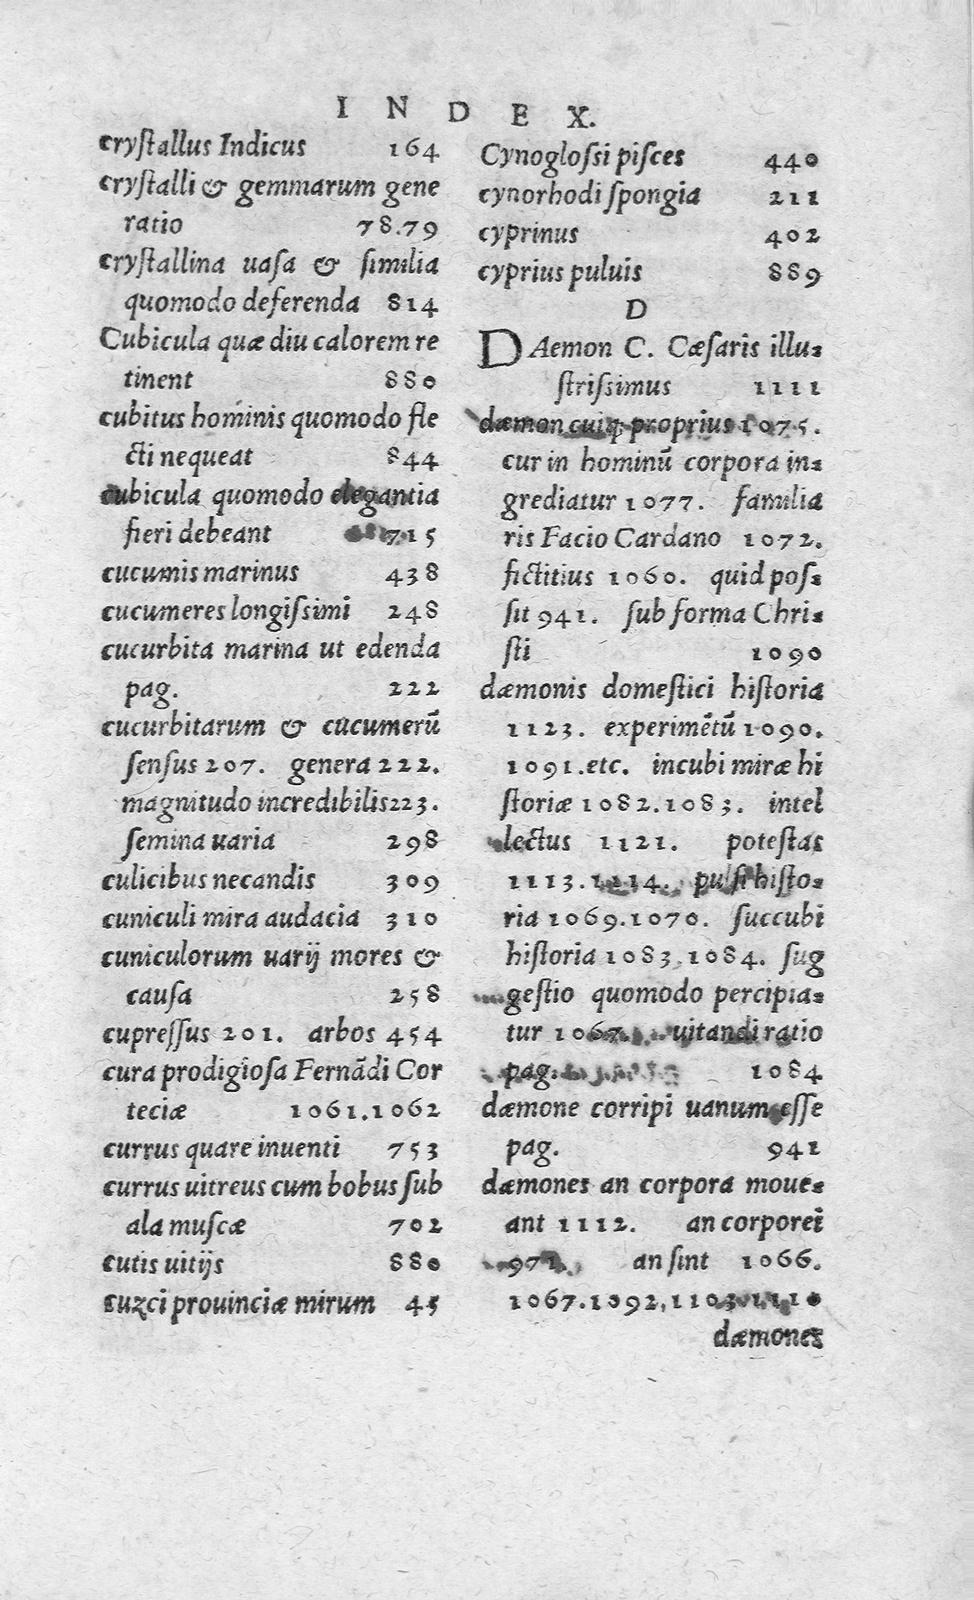 INDEX.
cryſtallus Indicus 164
cryſtalli & gemmarum gene
ratio 78.79
cryſtallina uaſa & ſimilia
quomodo deferenda 814
Cubicula quæ diu calorem re
tinent 880
cubitus hominis quomodo fle
cti nequeat 844
cubicula quomodo elegantia
fieri debeant 715
cucumis marinus 438
cucumeres longiſsimi 248
cucurbita marina ut edenda
pag. 222
cucurbitarum & cucumerū
ſenſus 207. genera 222.
magnitudo incredibilis 223.
ſemina uaria 298
culicibus necandis 309
cuniculi mira audacia 310
cuniculorum uarij mores &
cauſa 258
cupreſſus 201. arbos 454
cura prodigioſa Fernādi Cor
teciæ 1061.1062
currus quare inuenti 753
currus uitreus cum bobus ſub
ala muſcæ 702
cutis uitijs 880
cuzci prouinciæ mirum 45
Cynogloſsi piſces 440
cynorhodi ſpongia 211
cyprinus 402
cyprius puluis 889
D
DAemon C. Cæſaris illu-
ſtriſsimus 1111
dæmon cuiq; proprius 1075.
cur in hominū corpora in-
grediatur 1077. familia
ris Facio Cardano 1072.
fictitius 1060. quid poſ-
ſit 941. ſub forma Chri-
ſti 1090
dæmonis domeſtici hiſtoria
1123. experimētū 1090.
1091.etc. incubi miræ hi
ſtoriæ 1082.1083. intel
lectus 1121. poteſtas
1113.1114. pulſi hiſto-
ria 1069.1070. ſuccubi
hiſtoria 1083.1084. ſug
geſtio quomodo percipia-
tur 1067. uitandi ratio
pag. 1084
dæmone corripi uanum eſſe
pag. 941
dæmones an corpora moue-
ant 1112. an corporei
971. an ſint 1066.
1067.1092,1103.1110
dæmones